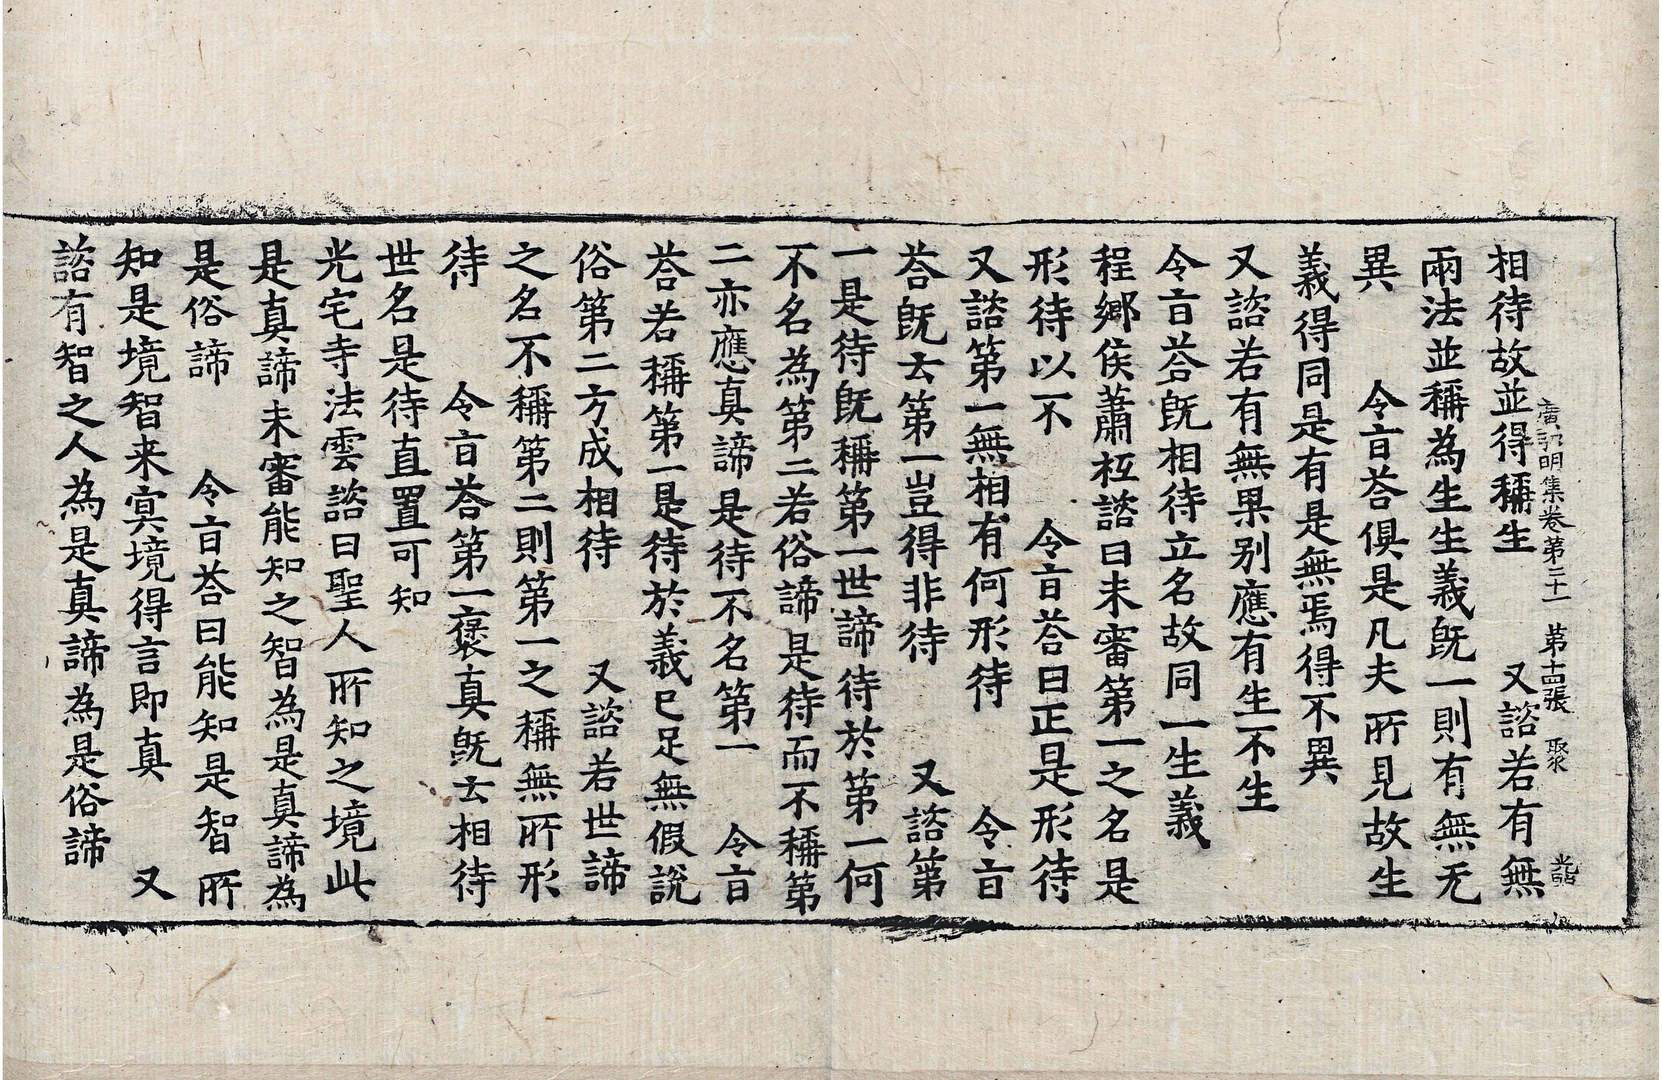 相待故並得稱生 又諮若有無
廣弘明集卷第二十一 第十四張 聚
兩法並稱為生生義旣一則有無无
異 令旨荅俱是凡夫所見故生
義得同是有是無焉得不異
又諮若有無果别應有生不生
令旨荅旣相待立名故同一生義
程鄉侯蕭祗諮曰未審第一之名是
形待以不 令旨荅曰正是形待
又諮第一無相有何形待 令旨
荅旣云第一豈得非待 又諮第
一是待旣稱第一世諦待於第一何
不名為第二若俗諦是待而不稱第
二亦應真諦是待不名第一 令旨
荅若稱第一是待於義已足無假說
俗第二方成相待 又諮若世諦
之名不稱第二則第一之稱無所形
待 令旨荅第一褒真旣云相待
世名是待直置可知
光宅寺法雲諮曰聖人所知之境此
是真諦未審能知之智為是真諦為
是俗諦 令旨荅曰能知是智所
知是境智来冥境得言即真 又
諮有智之人為是真諦為是俗諦